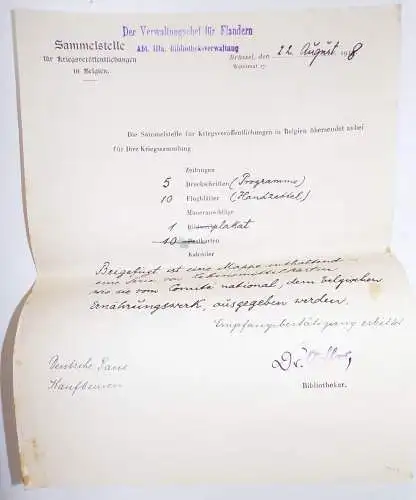 Der Verwaltungschef für Flandern
Abt. IIIa. Bibliotheksverwaltung
Sammelstelle
für Kriegsveröffentlichungen
in Belgien.
Brüssel, den 22. August 1918
Die Sammelstelle für Kriegsveröffentlichungen in Belgien übersendet anbei
für Ihre Kriegssammlung
Zeitungen
5 Druckschriften (Programme)
10 Flugblätter (Handzettel)
Maueranschläge
1 Bilder plakat
10 Postkarten
Kalender
Beigefügt ist eine Mappe enthaltend
eine Serie von Lebensmittelkarten
wie sie vom Comité national, dem belgischen
Ernährungswerk, ausgegeben werden.
Empfangsbestätigung erbeten
Deutsche
Kaufbeuren
Dr.
Bibliothekar.